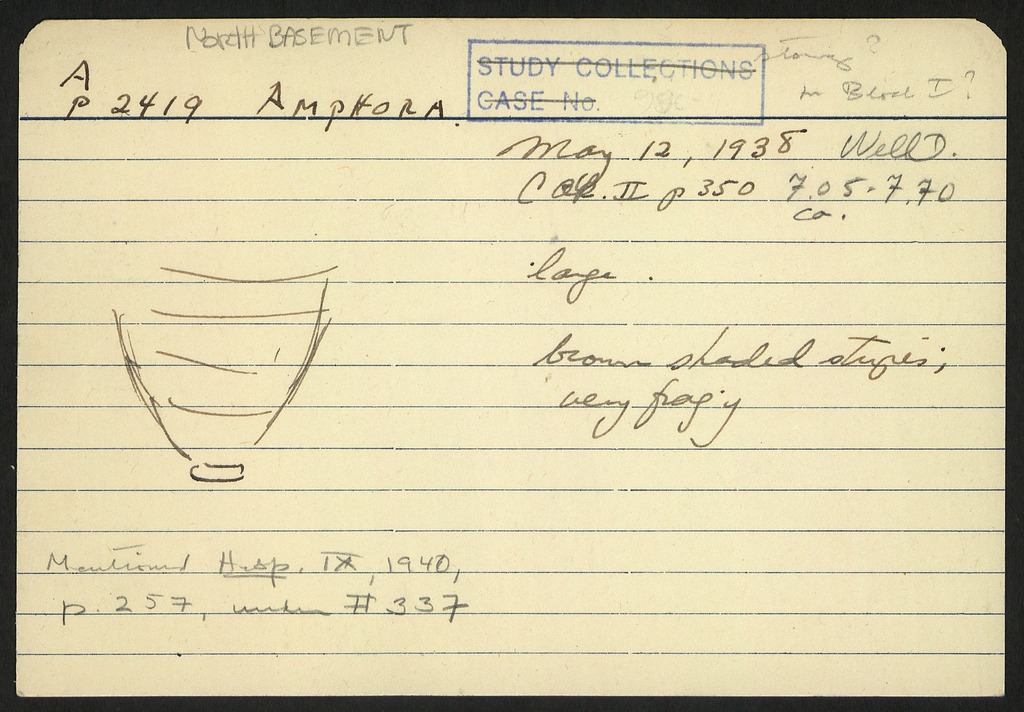 NORTH BASEMENT
STUDY COLLECTIONS
CASE No.
storage?
in Block I?
A
P 2419 AMPHORA.
May 12, 1938 Well D.
II p 350 7.05-7.70
ca.
large.
brown shaded stripes;
very frag'y
Mentioned Hesp. IX, 1940,
p. 257, under # 337